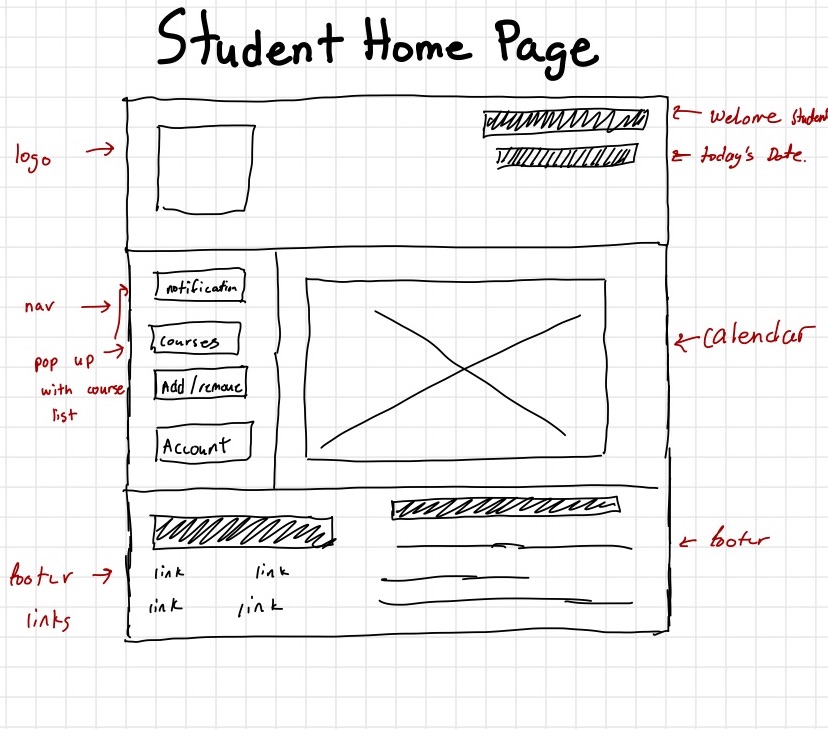 Student Home Page
logo
Welome Student
today's Date.
nav
pop up
with course
list
notification
Courses
Add / remove
Account
Calendar
footer
links
link link
link link
footer